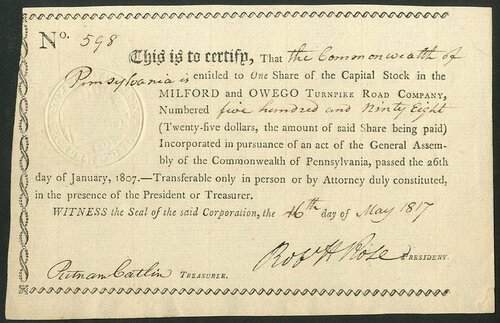 No. 598
This is to certify, That the Commonwealth of
Pennsylvania is entitled to One Share of the Capital Stock in the
MILFORD and OWEGO TURNPIKE ROAD COMPANY,
Numbered five hundred and Ninty Eight
(Twenty-five dollars, the amount of said Share being paid)
Incorporated in pursuance of an act of the General Assem-
bly of the Commonwealth of Pennsylvania, passed the 26th
day of January, 1807.—Transferable only in person or by Attorney duly constituted,
in the presence of the President or Treasurer.
WITNESS the Seal of the said Corporation, the 16th day of May 1817
Robt H Rose PRESIDENT.
Putnam Catlin TREASURER.